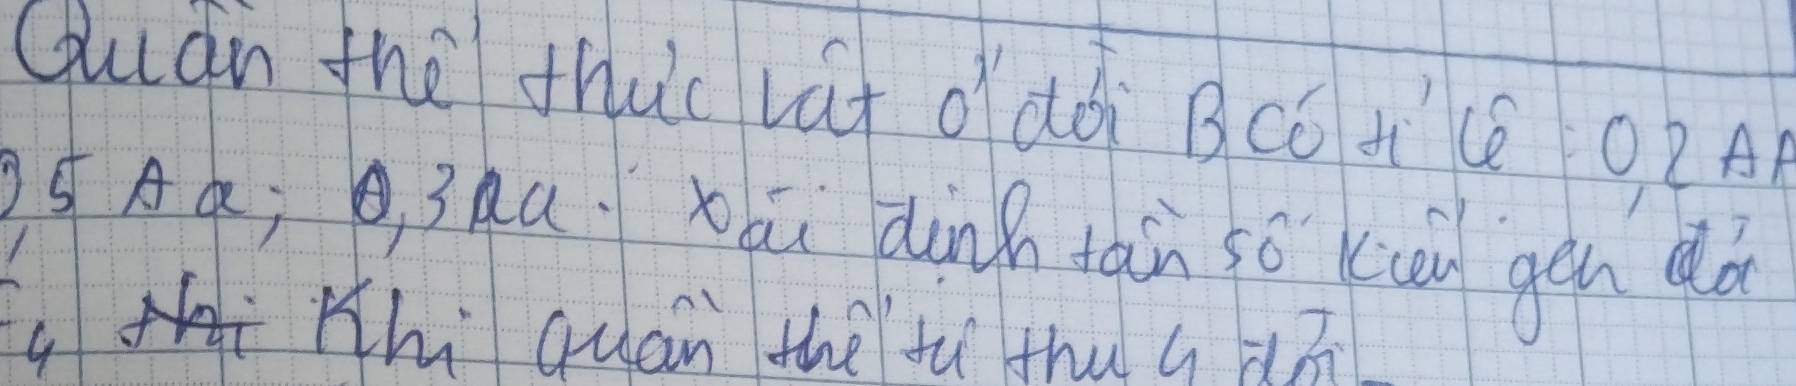 Quần thể thực vật ở đời B có tỉ lệ : 0,2 AA
0,5 Aa; 0,3 aa. Xác định tần số kiểu gen đời
F4 Khi quần thể tự thụ 4 đời